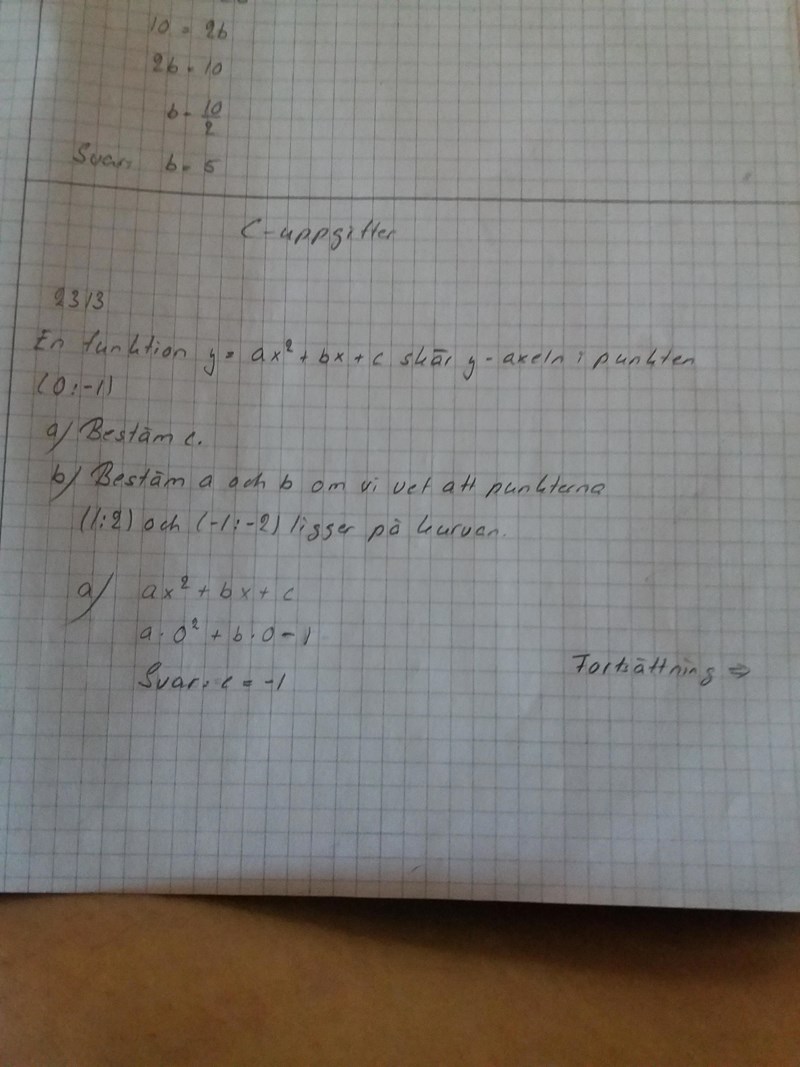 10 = 2b
2b = 10
b = 10/2
Svar: b = 5
C-uppgifter
2313
En funktion y = ax² + bx + c skär y-axeln i punkten
(0;-1)
a) Bestäm c.
b) Bestäm a och b om vi vet att punkterna
(1;2) och (-1;-2) ligger på kurvan.
a) ax² + bx + c
a·0² + b·0 - 1
Svar: c = -1
Fortsättning ⇒